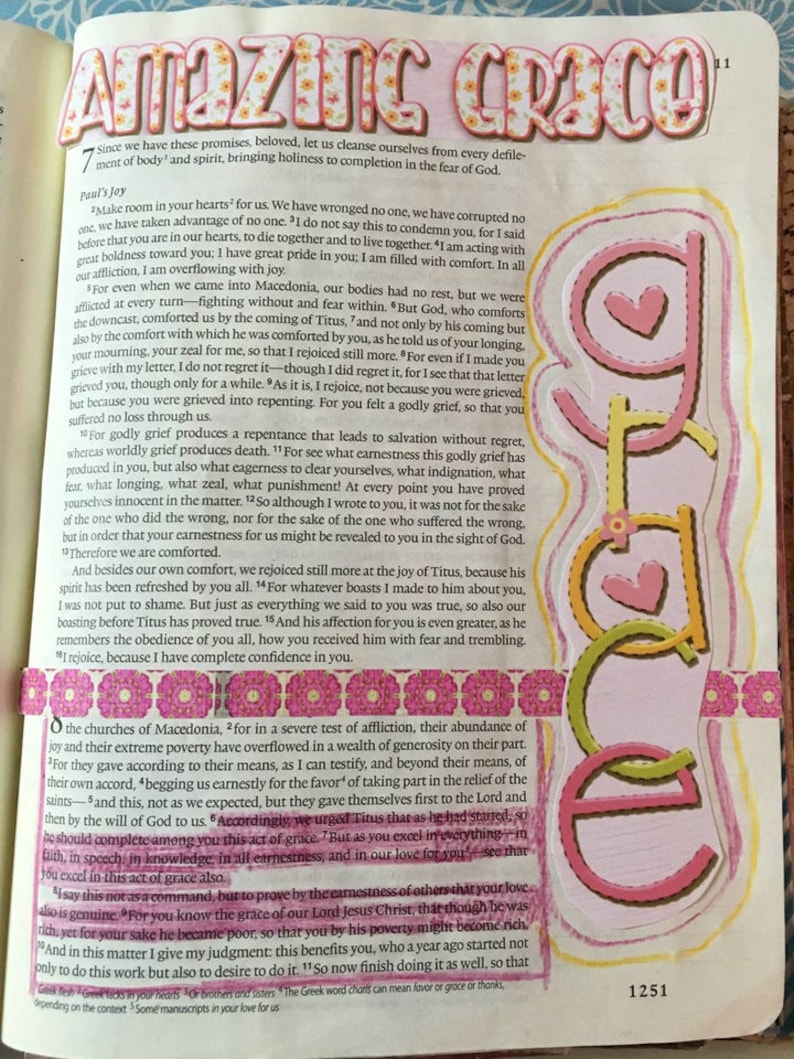 AMAZING GRACE
11
7 Since we have these promises, beloved, let us cleanse ourselves from every defile-
ment of body¹ and spirit, bringing holiness to completion in the fear of God.
Paul's Joy
²Make room in your hearts² for us. We have wronged no one, we have corrupted no
one, we have taken advantage of no one. ³I do not say this to condemn you, for I said
before that you are in our hearts, to die together and to live together. ⁴I am acting with
great boldness toward you; I have great pride in you; I am filled with comfort. In all
our affliction, I am overflowing with joy.
⁵For even when we came into Macedonia, our bodies had no rest, but we were
afflicted at every turn—fighting without and fear within. ⁶But God, who comforts
the downcast, comforted us by the coming of Titus, ⁷and not only by his coming but
also by the comfort with which he was comforted by you, as he told us of your longing,
your mourning, your zeal for me, so that I rejoiced still more. ⁸For even if I made you
grieve with my letter, I do not regret it—though I did regret it, for I see that that letter
grieved you, though only for a while. ⁹As it is, I rejoice, not because you were grieved,
but because you were grieved into repenting. For you felt a godly grief, so that you
suffered no loss through us.
¹⁰For godly grief produces a repentance that leads to salvation without regret,
whereas worldly grief produces death. ¹¹For see what earnestness this godly grief has
produced in you, but also what eagerness to clear yourselves, what indignation, what
fear, what longing, what zeal, what punishment! At every point you have proved
yourselves innocent in the matter. ¹²So although I wrote to you, it was not for the sake
of the one who did the wrong, nor for the sake of the one who suffered the wrong,
but in order that your earnestness for us might be revealed to you in the sight of God.
¹³Therefore we are comforted.
And besides our own comfort, we rejoiced still more at the joy of Titus, because his
spirit has been refreshed by you all. ¹⁴For whatever boasts I made to him about you,
I was not put to shame. But just as everything we said to you was true, so also our
boasting before Titus has proved true. ¹⁵And his affection for you is even greater, as he
remembers the obedience of you all, how you received him with fear and trembling.
¹⁶I rejoice, because I have complete confidence in you.
8 the churches of Macedonia, ²for in a severe test of affliction, their abundance of
joy and their extreme poverty have overflowed in a wealth of generosity on their part.
³For they gave according to their means, as I can testify, and beyond their means, of
their own accord, ⁴begging us earnestly for the favor⁴ of taking part in the relief of the
saints— ⁵and this, not as we expected, but they gave themselves first to the Lord and
then by the will of God to us. ⁶Accordingly, we urged Titus that as he had started, so
he should complete among you this act of grace. ⁷But as you excel in everything—in
faith, in speech, in knowledge, in all earnestness, and in our love for you⁵—see that
you excel in this act of grace also.
⁸I say this not as a command, but to prove by the earnestness of others that your love
also is genuine. ⁹For you know the grace of our Lord Jesus Christ, that though he was
rich, yet for your sake he became poor, so that you by his poverty might become rich.
¹⁰And in this matter I give my judgment: this benefits you, who a year ago started not
only to do this work but also to desire to do it. ¹¹So now finish doing it as well, so that
¹Greek flesh ²Greek lacks in your hearts ³Or brothers and sisters ⁴The Greek word charis can mean favor or grace or thanks,
depending on the context ⁵Some manuscripts in your love for us
grace
1251